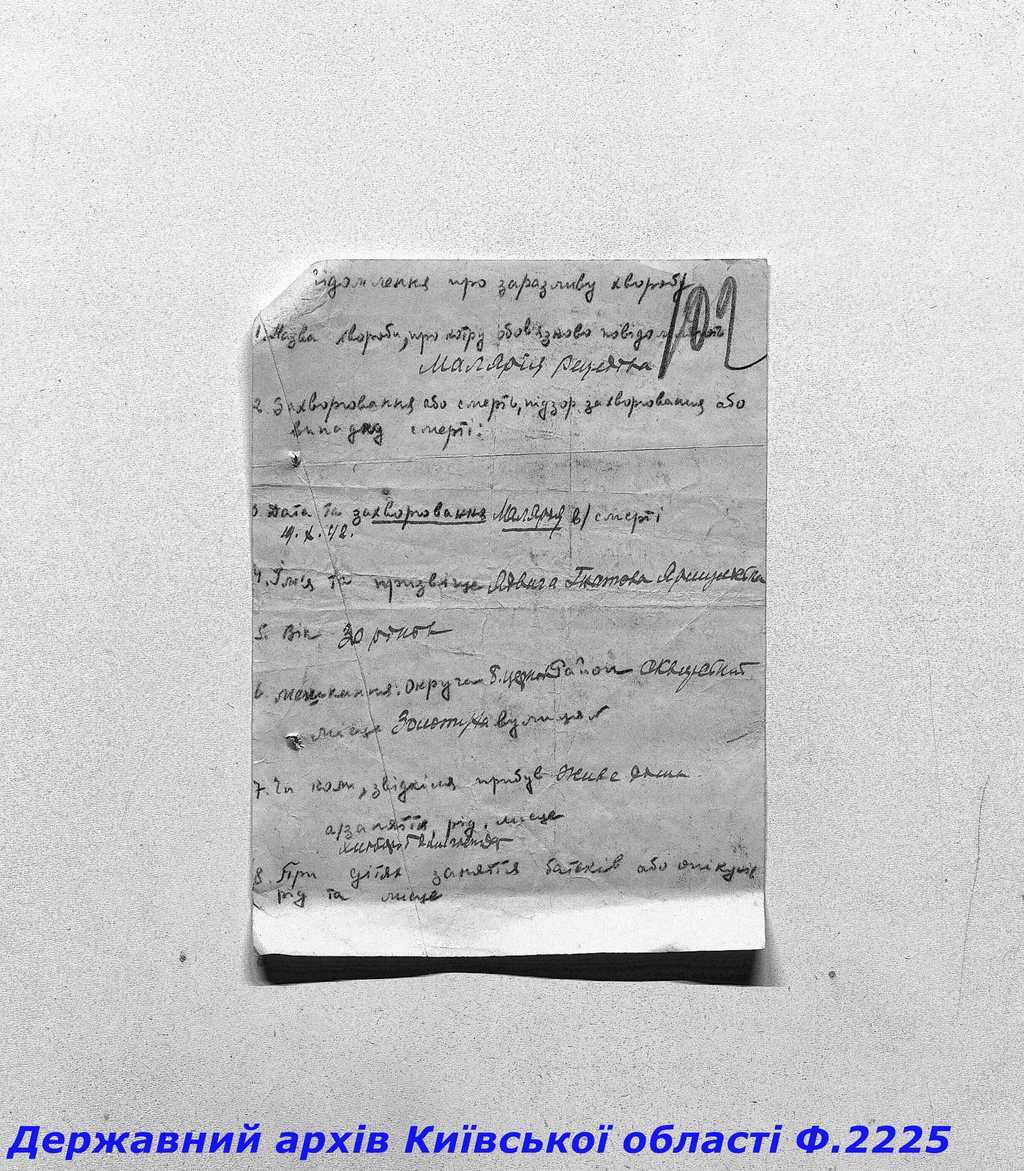 ідомлення про заразливу хворобу
102
1. Назва хвороби, про котру обов'язково повідомляють
Малярія
2. Захворовання або смерть, підзор. захворовання або
випадку смерті:
3. Дата та захворовання Малярія в/смерті
19.X.42.
4. Імя та призвіще Ядвига Гнатова
5. Вік 30
6. мешкання: Округа Б.церков Район Сквирський
місце вулиця
7. Чи коли, звідкіля прибув Живе
а/заняття, рід, місце
8. При дітях заняття батьків або опікунів
рід та місце
Державний архів Київської області Ф.2225